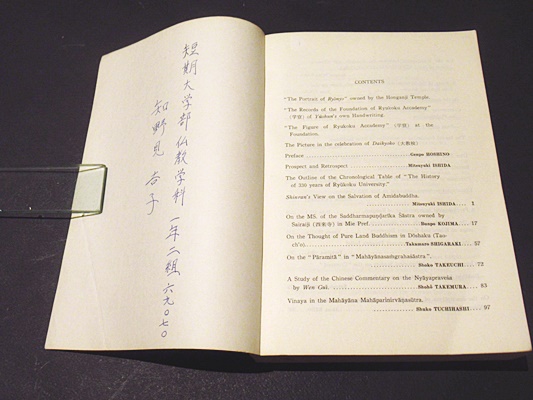 短期大学部仏教学科 一年二組 六九〇七〇
知野見 合子
CONTENTS
"The Portrait of Ryōnyo" owned by the Honganji Temple.
"The Records of the Foundation of Ryūkoku Accademy"
(学寮) of Tsūhon's own Handwriting.
"The Figure of Ryūkoku Accademy" (学寮) at the
Foundation.
The Picture in the celebration of Daikyoko (大教校)
Preface Gempo HOSHINO
Prospect and Retrospect Mitsuyuki ISHIDA
The Outline of the Chronological Table of "The History
of 330 years of Ryūkoku University."
Shinran's View on the Salvation of Amidabuddha.
Mitsuyuki ISHIDA 1
On the MS. of the Saddharmapuṇḍarīka Śāstra owned by
Sairaiji (西来寺) in Mie Pref. Bunpo KOJIMA 17
On the Thought of Pure Land Buddhism in Dōshaku (Tao-
ch'o) Takamaro SHIGARAKI 57
On the "Pāramitā" in "Mahāyānasaṁgrahaśāstra".
Shoko TAKEUCHI 72
A Study of the Chinese Commentary on the Nyāyapraveśa
by Wen Gui. Shohō TAKEMURA 83
Vinaya in the Mahāyāna Mahāparinirvāṇasūtra.
Shuko TUCHIHASHI 97